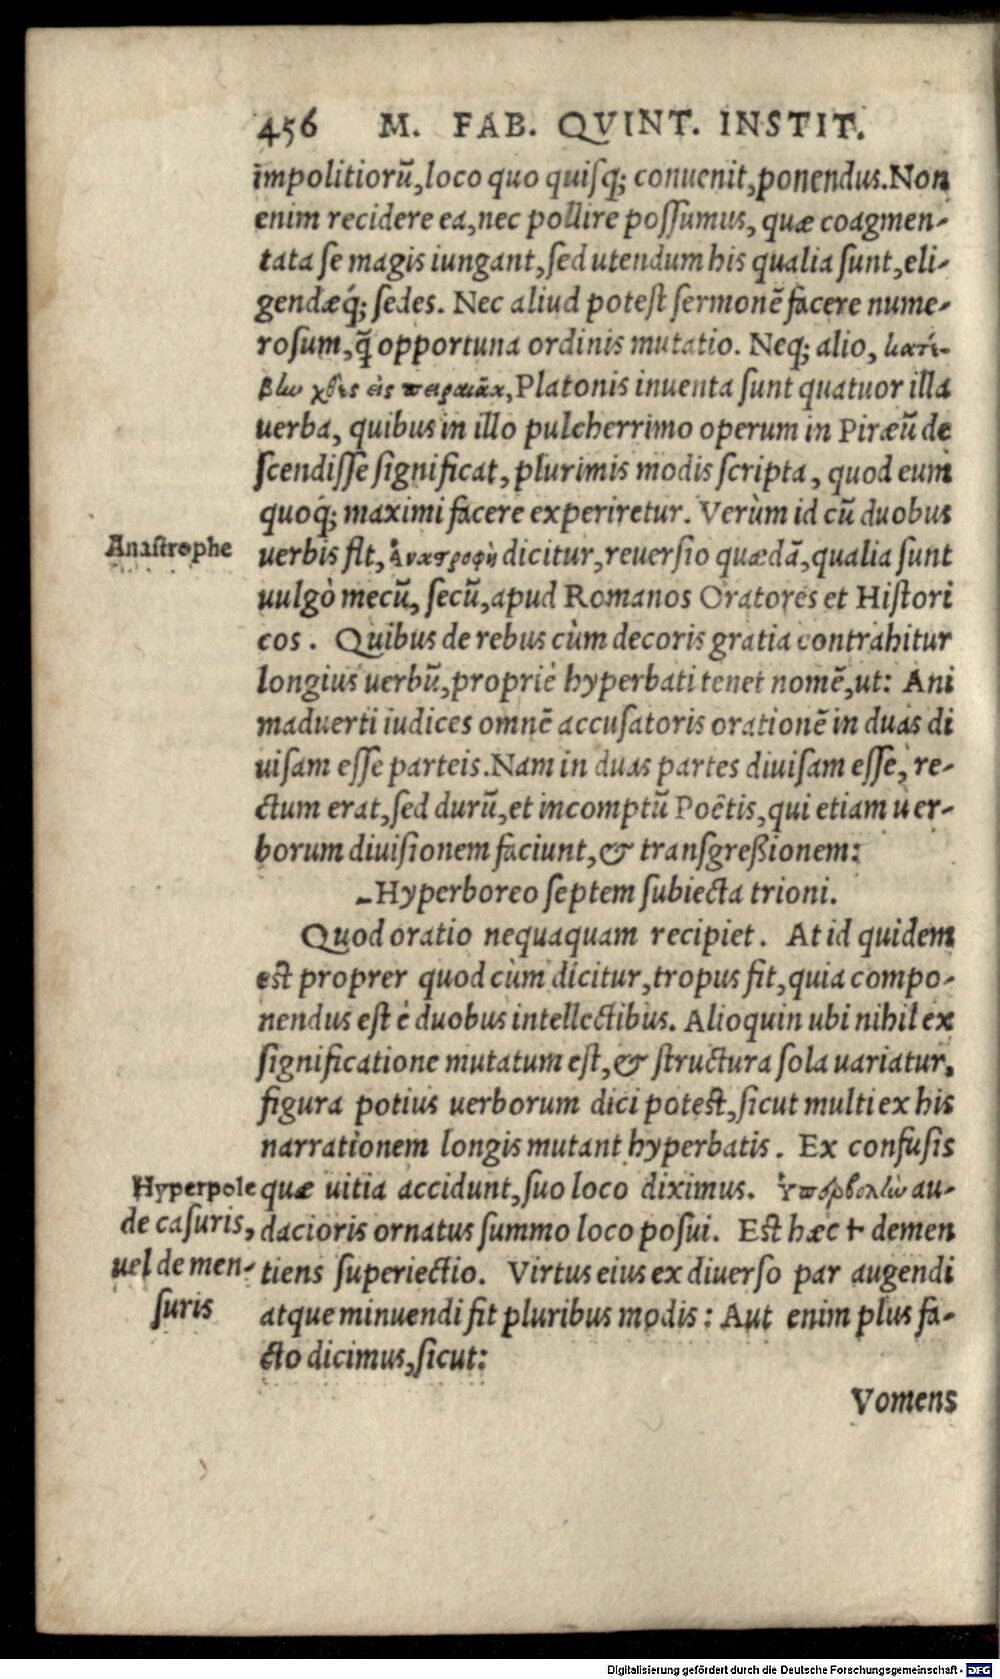 456 M. FAB. QVINT. INSTIT.
impolitiorũ, loco quo quisq; conuenit, ponendus. Non
enim recidere ea, nec pollire possumus, quæ coagmen-
tata se magis iungant, sed utendum his qualia sunt, eli-
gendæq́; sedes. Nec aliud potest sermonẽ facere nume-
rosum, q̃ opportuna ordinis mutatio. Neq; alio, κατέ-
βλω χθὲς εἰς πειραιᾶκ, Platonis inuenta sunt quatuor illa
uerba, quibus in illo pulcherrimo operum in Piræũ de
scendisse significat, plurimis modis scripta, quod eum
quoq́; maximi facere experiretur. Verùm id cũ duobus
Anastrophe
uerbis fit, ἀναστροφὴ dicitur, reuersio quædã, qualia sunt
uulgò mecũ, secũ, apud Romanos Oratores et Histori
cos. Quibus de rebus cùm decoris gratia contrahitur
longius uerbũ, propriè hyperbati tenet nomẽ, ut: Ani
maduerti iudices omnẽ accusatoris orationẽ in duas di
uisam esse parteis. Nam in duas partes diuisam esse, re-
ctum erat, sed durũ, et incomptũ Poëtis, qui etiam uer-
borum diuisionem faciunt, & transgreßionem:
-Hyperboreo septem subiecta trioni.
Quod oratio nequaquam recipiet. At id quidem
est proprer quod cùm dicitur, tropus fit, quia compo-
nendus est è duobus intellectibus. Alioquin ubi nihil ex
significatione mutatum est, & structura sola uariatur,
figura potius uerborum dici potest, sicut multi ex his
narrationem longis mutant hyperbatis. Ex confusis
Hyperpole
de casuris,
uel de men-
suris
quæ uitia accidunt, suo loco diximus. Ὑπερβολὼ au-
dacioris ornatus summo loco posui. Est hæc + demen
tiens superiectio. Virtus eius ex diuerso par augendi
atque minuendi fit pluribus modis: Aut enim plus fa-
cto dicimus, sicut:
Vomens
Digitalisierung gefördert durch die Deutsche Forschungsgemeinschaft - DFG